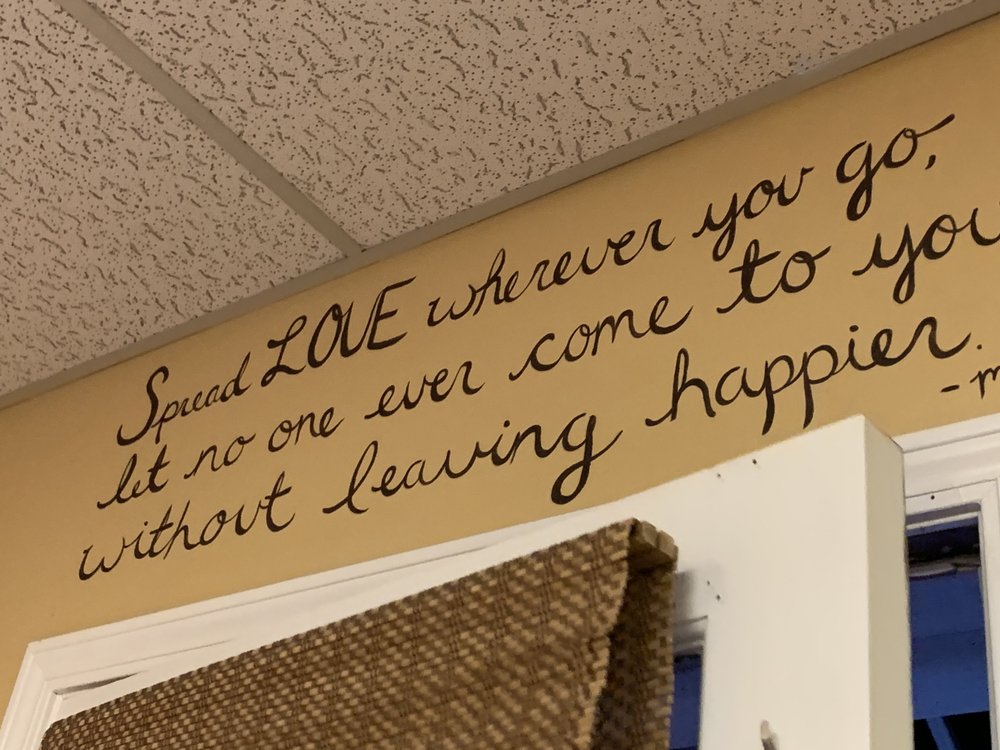 Spread LOVE wherever you go,
let no one ever come to you
without leaving happier.
- m